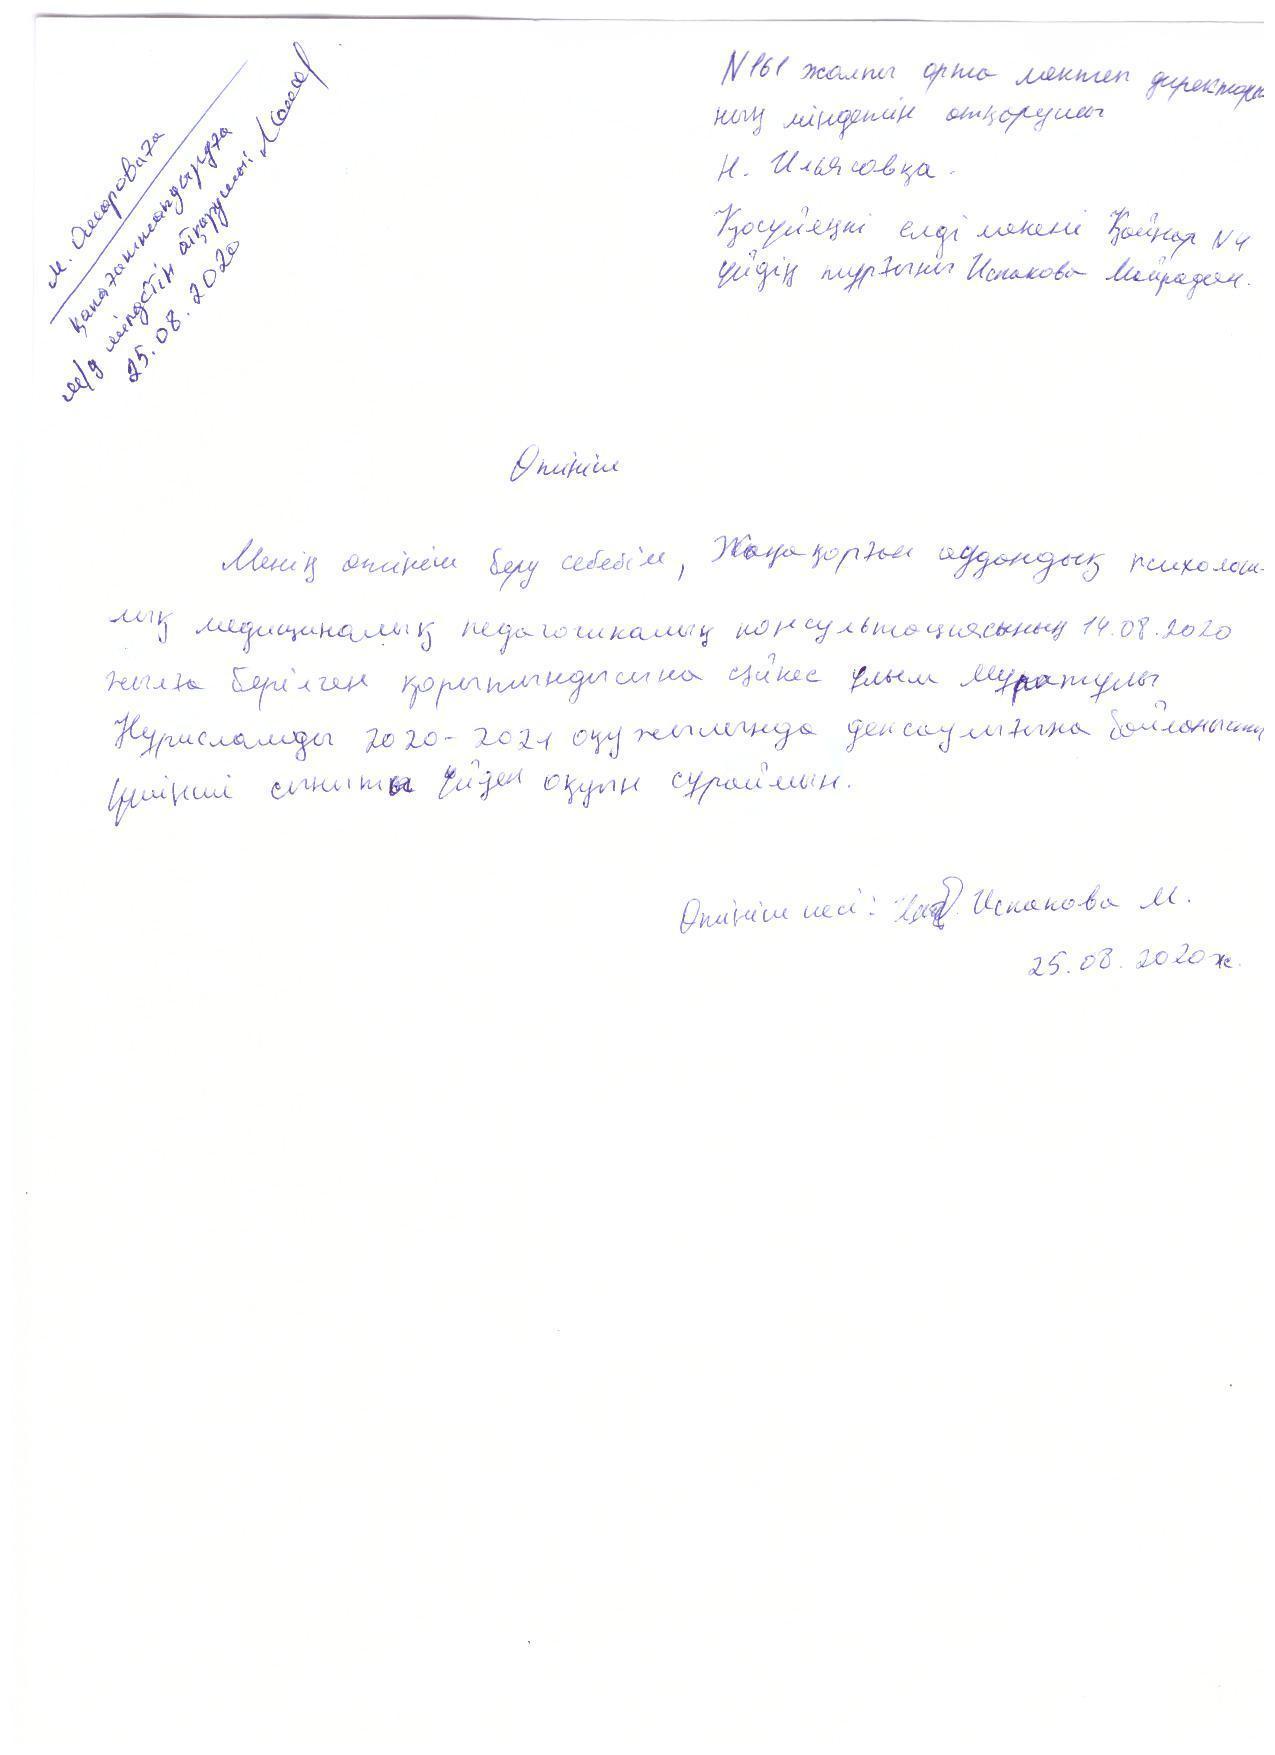 М. Омароваға
қанағаттандыруға
м/д міндетін атқарушы:
25.08.2020
N161 жалпы орта мектеп директоры-
ның міндетін атқарушы
Н. Ильясовқа.
Қосүйеңкі елді мекені Қайнар N4
үйдің тұрғыны Испанова Майрадан.
Өтініш
Менің өтініш беру себебім, Жаңақорған аудандық психология-
лық медициналық педагогикалық консультациясының 14.08.2020
жылға берілген қорытындысына сәйкес ұлым Мұратұлы
Нұрисламды 2020-2021 оқу жылында денсаулығына байланысты
үшінші сыныпты үйден оқуын сұраймын.
Өтініш иесі: Испанова М.
25.08.2020ж.